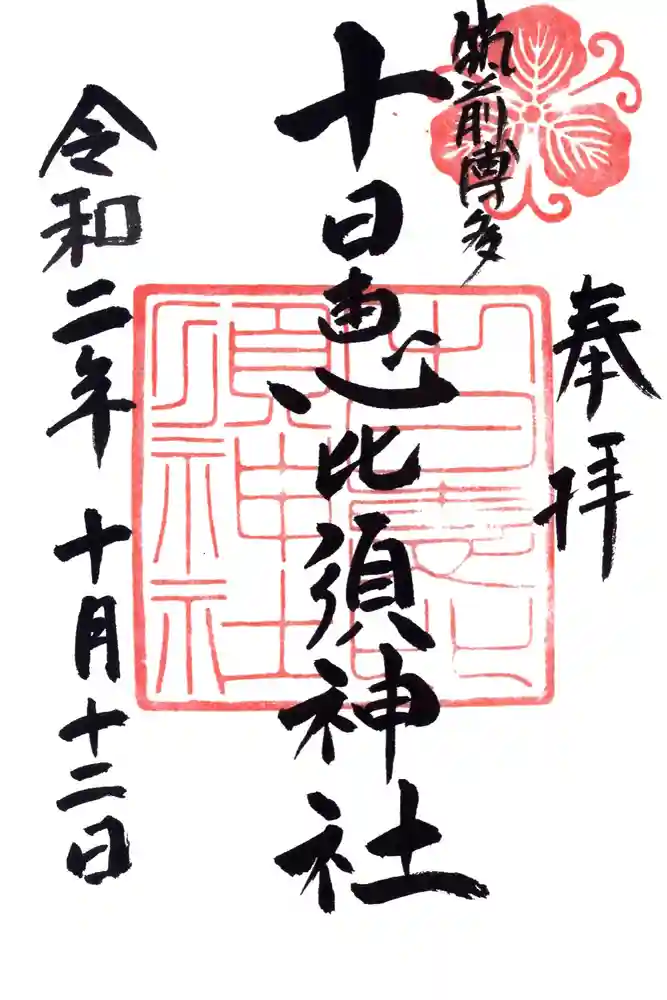 奉拝
筑前博多
十日恵比須神社
令和二年十月十二日
十日恵比須神社